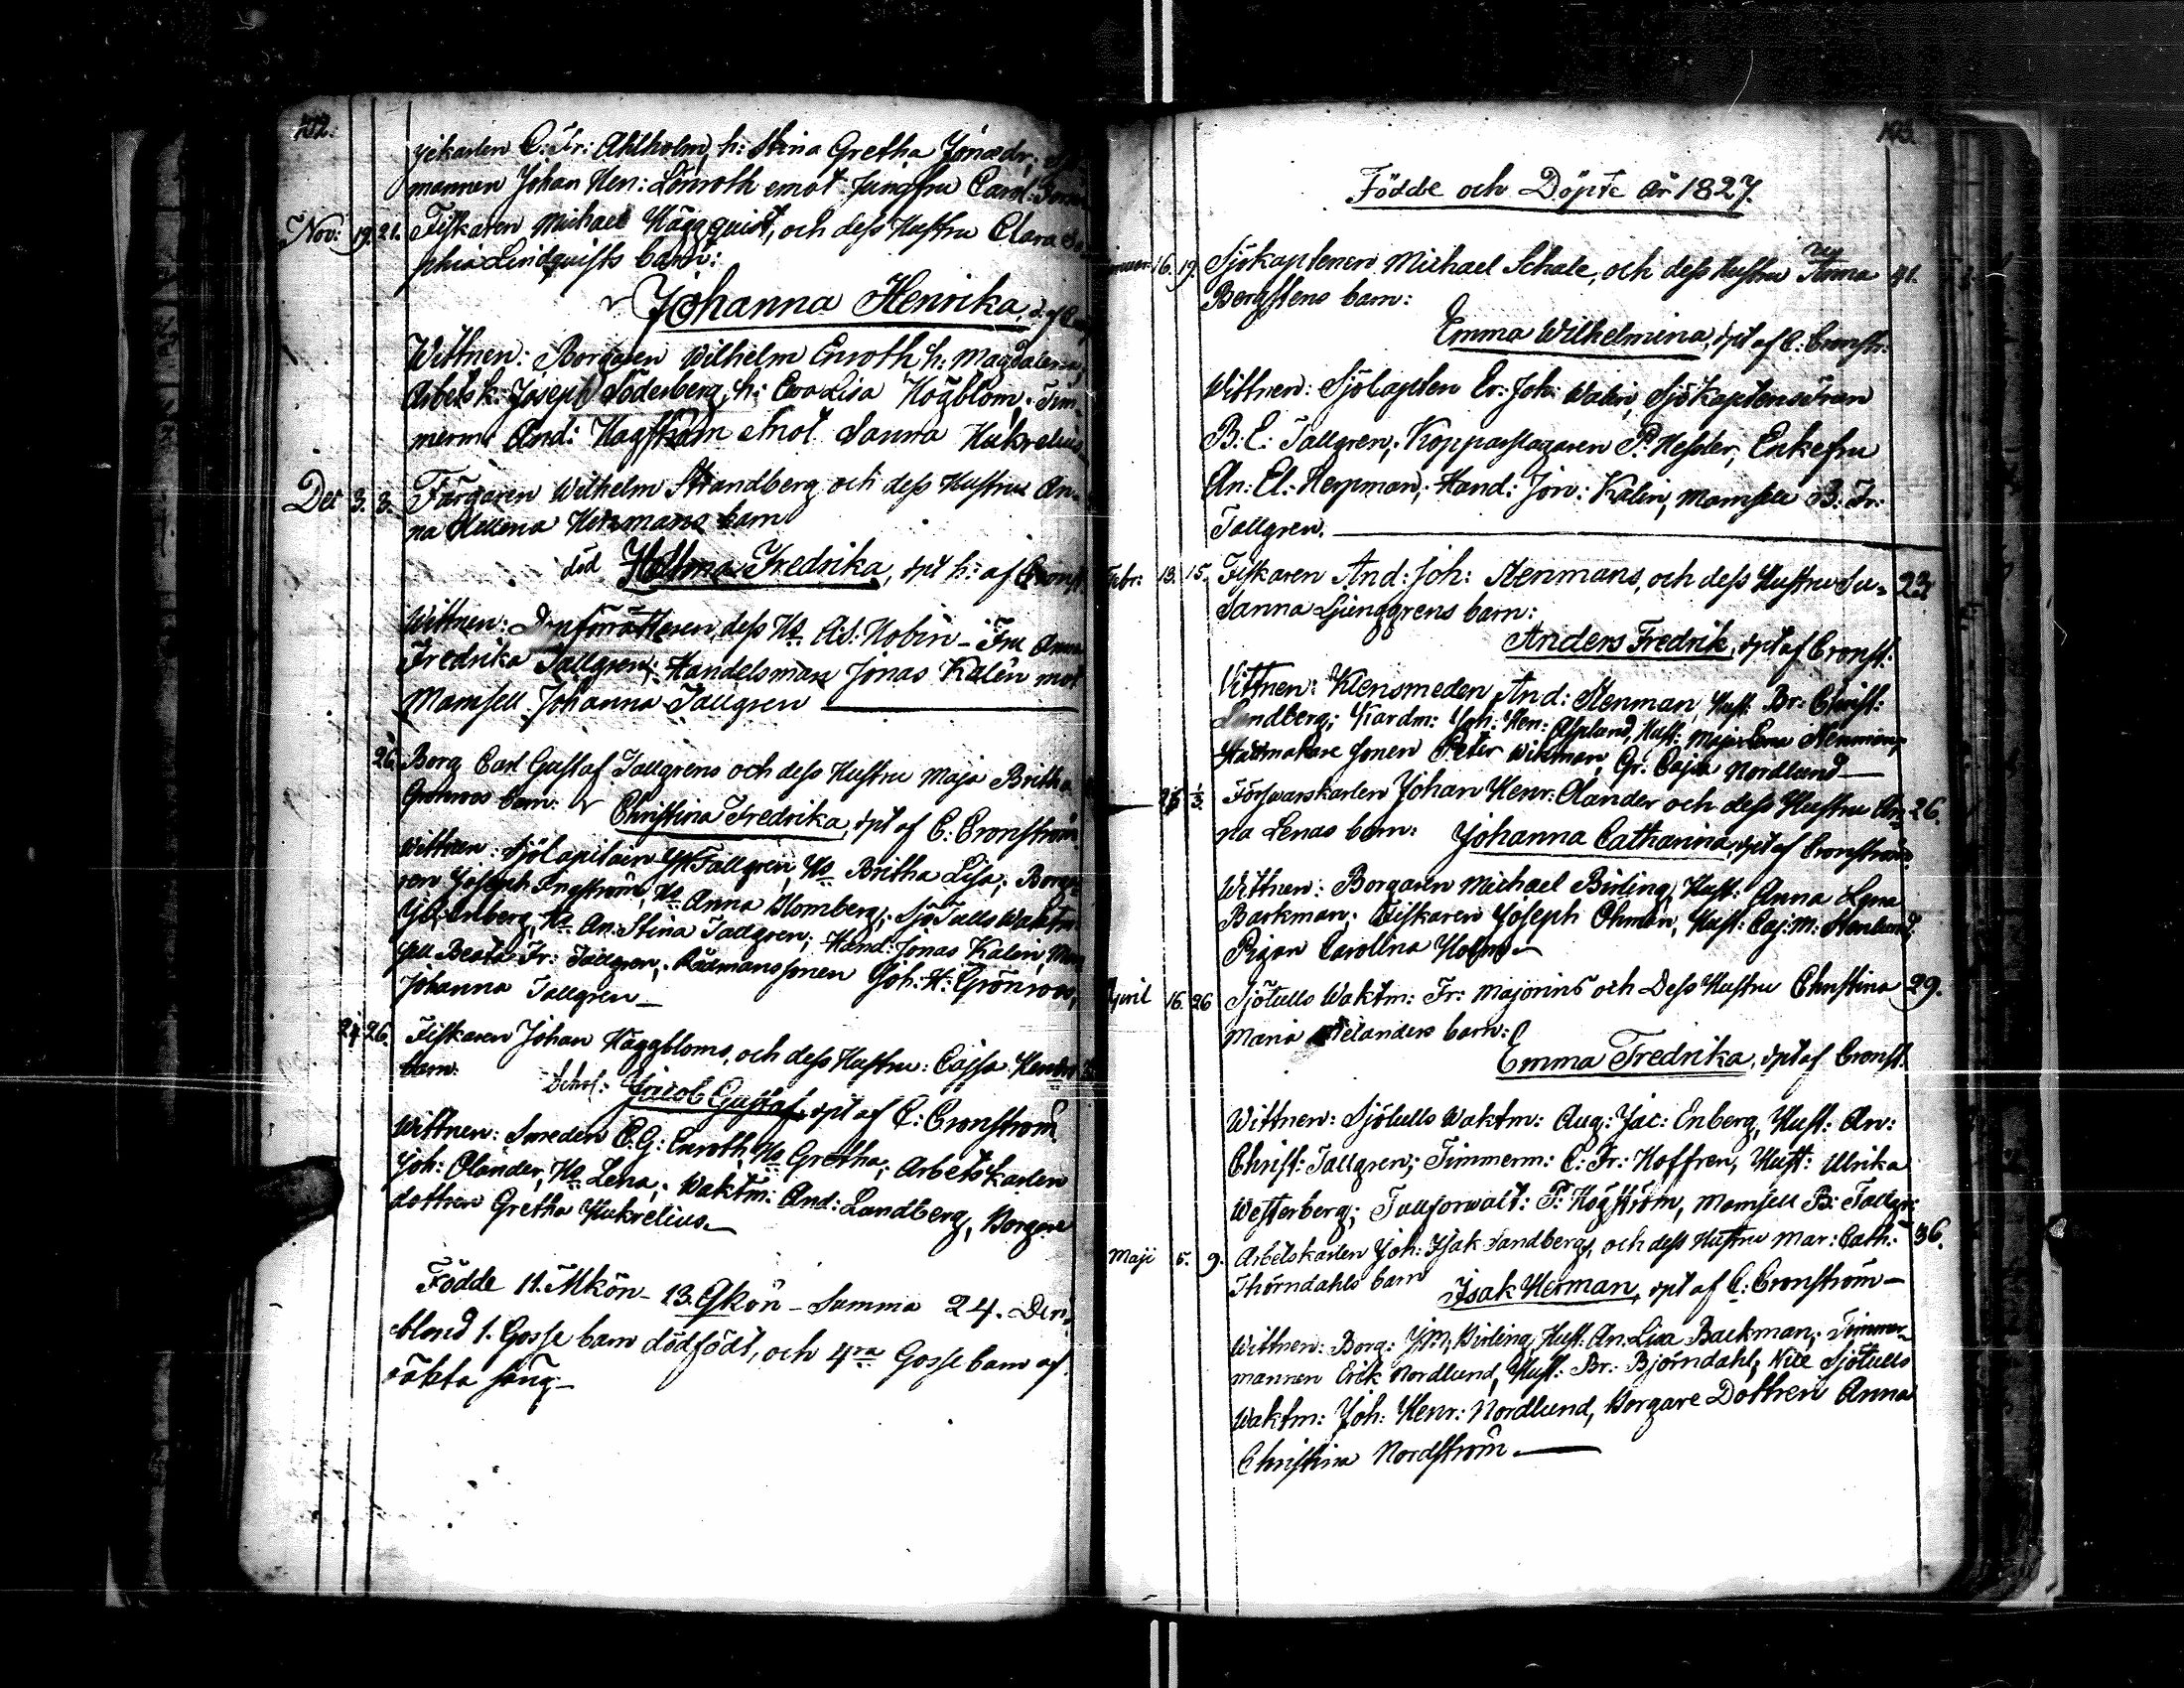 karlen C: Fr: Ahlholm, h: Stina Gretha Jönædr;
mannen Johan Hen: Lönroth emot Jungfru Carol:
Nov: 19. 21. Fiskaren Michael Häggquist, och dess Hustru Clara So-
phia Lindquists barn:
Johanna Henrika,
Wittnen: Borgaren Wilhelm Enroth h: Magdalena;
Arbets k: Joseph Söderberg, h: Eva Lisa Högblom; Tim-
merm: And: Hagström emot Sanna Hukrelius
Dec 3. 8. Färgaren Wilhelm Strandberg och dess Hustru An-
na Helena barn
död Fredrika, dpt h: af Cronst:
Wittnen: dess Ha A:d: Nobin - Fru Anna
Fredrika Tallgren; Handelsman Jonas Kalén mot
Mamsell Johanna Tallgren
26. Borg Carl Gustaf Tallgrens och dess Hustru Maja Britha
Grönroos barn: Christina Fredrika, dpt af C: Cronström.
Wittnen: Sjö Capitain Tallgren, Ha Britha Lisa; Borga-
ren Joseph Engström, Ha Anna Blomberg; Sjö Tulls Waktm:
Enberg, Ha An: Stina Tallgren; Hand: Jonas Kalin, Mam
sell Beata Fr: Tallgren; Rådmanssonen Joh: H: Grönroos,
Johanna Tallgren
24. 26. Fiskaren Johan Häggbloms, och dess Hustru: Cajsa
barn. Jacob Gustaf, dpt af C: Cronström.
Wittnen: Smeden C: G: Enroth, Ha Gretha; Arbetskarlen
Joh: Olander, Ha Lena; Waktm: And: Landberg, Borgare
dottren Gretha Hukrelius
Födde 11. Mkön - 13. Qkön - Summa 24. Der
ibland 1. Gosse barn dödfödt, och 4ra Gosse barn af
oäkta säng
Födde och Döpte År 1827.
16. 19. Sjökaptenen Michael Schale, och dess Hustru Anna 41.
Bergstens barn:
Emma Wilhelmina, dpt af C: Cronstr:
Wittnen: Sjöcapten Er: Joh: Walin, Sjökaptens Fruan
B: E: Tallgren; Kopparslagaren P: Hessler, Enkefru
An: El: Herpman; Hand: Jon: Kalin, Mamsell B: Fr:
Tallgren.
Febr: 13. 15. Fiskaren And: Joh: Stenmans, och dess Hustru Su-
sanna Ljunggrens barn:
Anders Fredrik, dpt af Cronst:
Wittnen: Klensmeden And: Stenman, Hust: Br: Christ:
Landberg; Kardm: Joh: Hen: Asplund, Hust: Maja Lena Stenman;
Hattmakare sonen Peter Wikman, Gr: Cajsa Nordlund
1/3 Försvarskarlen Johan Henr: Olander och dess Hustru An- 26.
na Lenas barn: Johanna Catharina, dpt af Cronström.
Wittnen: Borgaren Michael Birling, Hust: Anna Lena
Backman; Fiskaren Joseph Öhman, Hust: Caj: M: Stenlund;
Pigan Carolina Holm
April 16. 26 Sjötulls Waktm: Fr: Majorins och Dess Hustru Christina 29.
Maria Melanders barn:
Emma Fredrika, dpt af Cronst.
Wittnen: Sjötulls Waktm: Aug: Jac: Enberg, Hust: An:
Christ: Tallgren; Timmerm: C: Fr: Hoffren, Hust: Ulrika
Westerberg; Tullforwalt: P: Högström, Mamsell B: Tallgr:
Maji 5. 9. Arbetskarlen Joh: Isak Sandbergs, och dess Hustru Mar: Cath: 36.
Thörndahls barn Isak Herman, dpt af C: Cronström
Wittnen: Borg: J: M: Birling, Hust: An: Lisa Backman; Timmer-
mannen Erik Nordlund, Hust: Br: Björndahl; Vice Sjötulls
Waktm: Joh: Henr: Nordlund, Borgare Dottren Anna
Christina Nordström